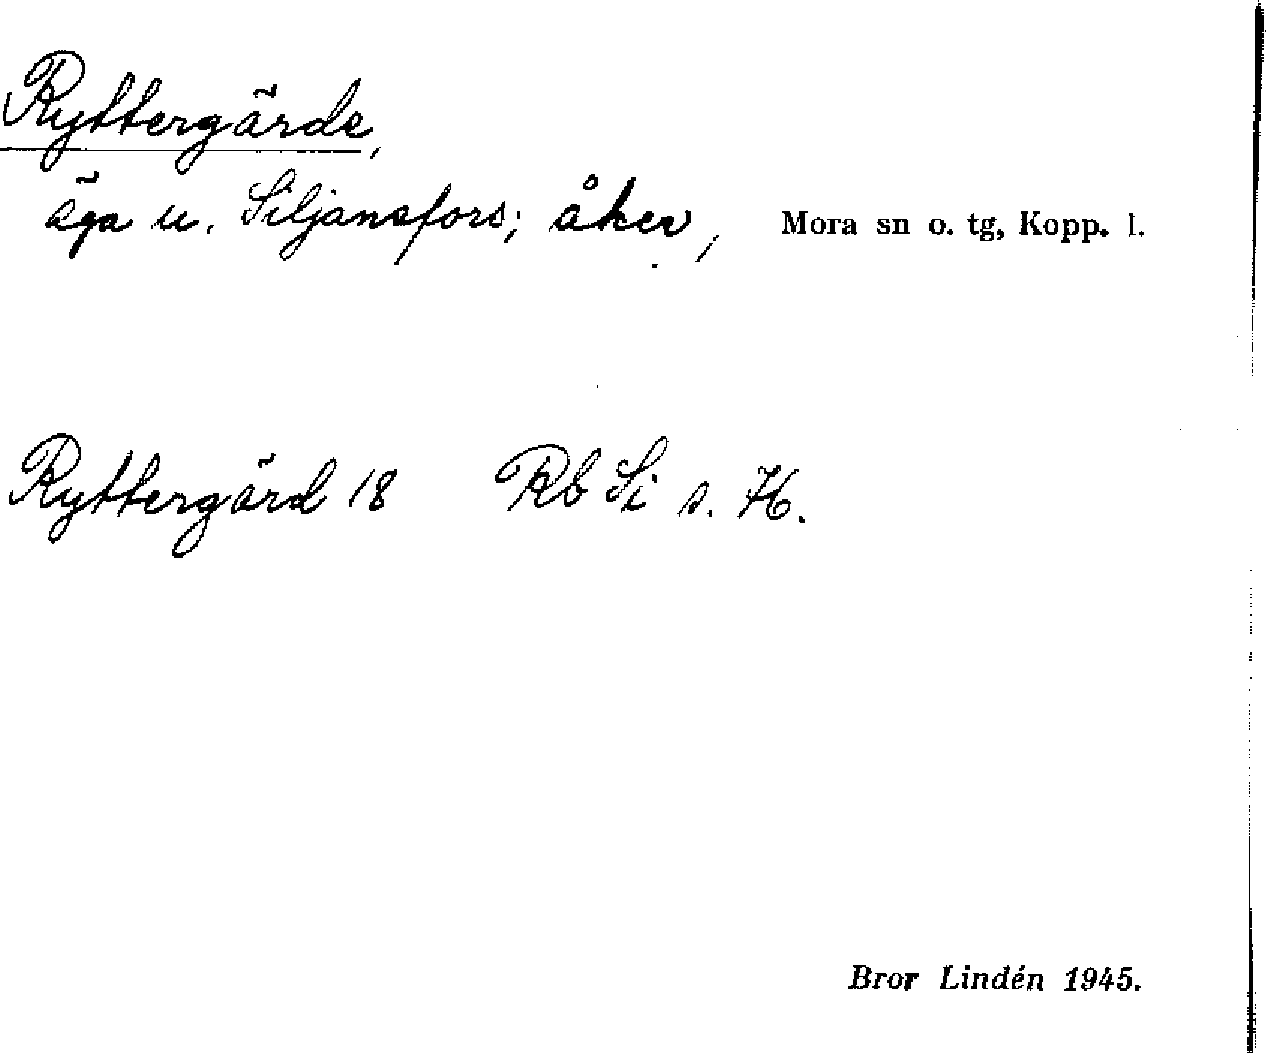 Ryttergärde,
äga u. Siljansfors; åker, Mora sn o. tg, Kopp. l.
Ryttergärd 18 Rb Si s. H.
Bror Lindén 1945.